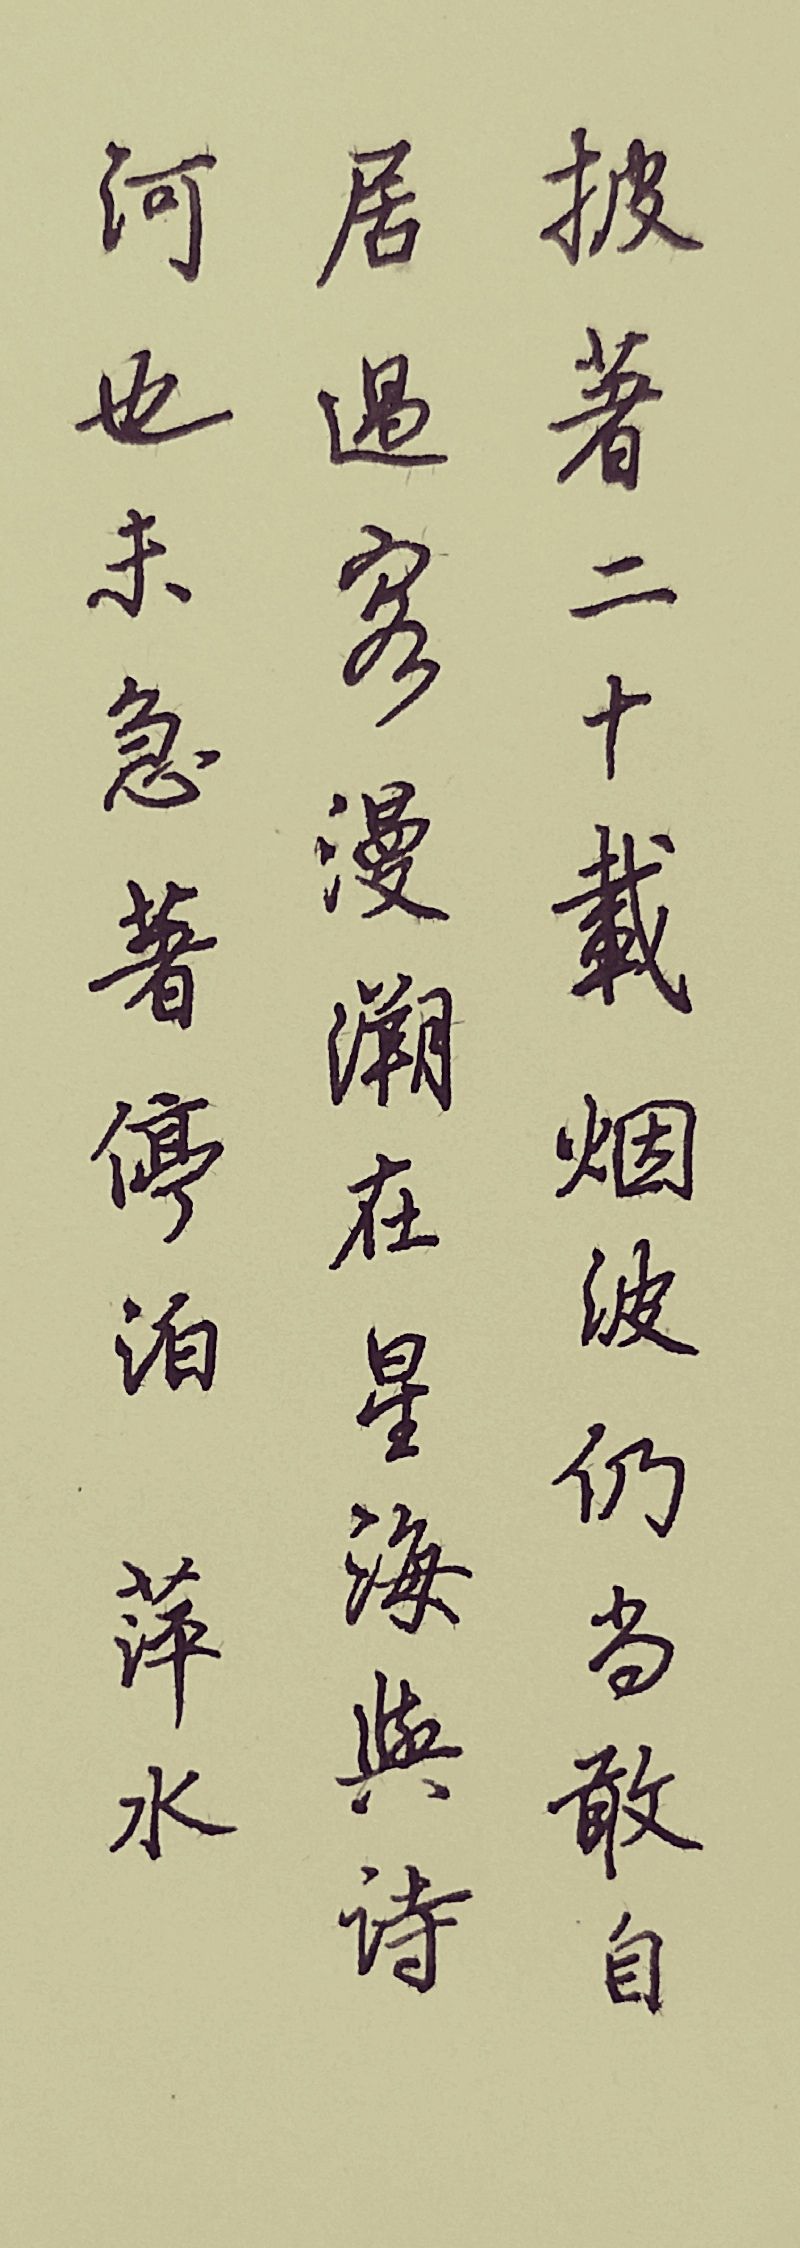 披著二十載烟波仍当敢自
居過客漫溯在星海與诗
河也未急著停泊 萍水